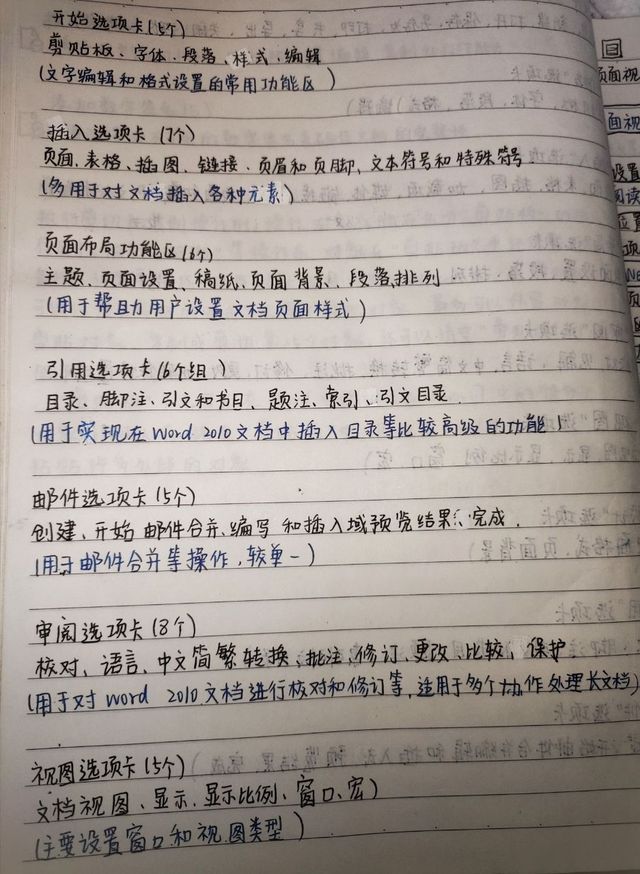 开始选项卡(5个)
剪贴板、字体、段落、样式、编辑
(文字编辑和格式设置的常用功能区)
插入选项卡(7个)
页面、表格、插图、链接、页眉和页脚、文本符号和特殊符号
(多用于对文档插入各种元素)
页面布局功能区(6个)
主题、页面设置、稿纸、页面背景、段落、排列
(用于帮助用户设置文档页面样式)
引用选项卡(6个组)
目录、脚注、引文和书目、题注、索引、引文目录.
(用于实现在Word 2010文档中插入目录等比较高级的功能)
邮件选项卡(5个)
创建、开始邮件合并、编写和插入域预览结果、完成.
(用于邮件合并等操作,较单一)
审阅选项卡(8个)
核对、语言、中文简繁转换、批注、修订、更改、比较、保护
(用于对word 2010文档进行核对和修订等,适用于多个协作处理长文档)
视图选项卡(5个)
文档视图、显示、显示比例、窗口、宏)
(主要设置窗口和视图类型)
页面视
面视
设置
阅读
位置
项
页